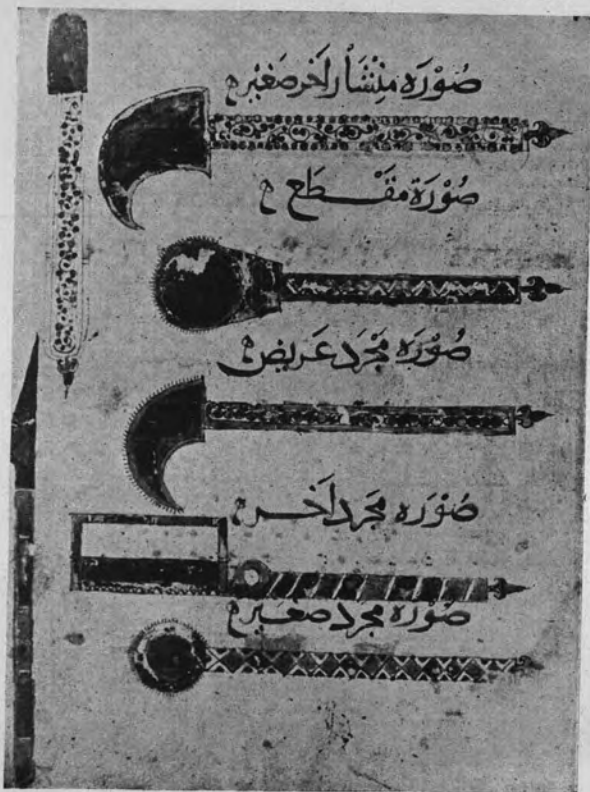 صُوْرَة مِنْشَار اَخر صَغيْر
صُوْرَة مقْطع
صُوْرَة مجْرد عَريض
صُوْرَة مجْرد اَخر
صُوْرَة مجْرد صَغيْر